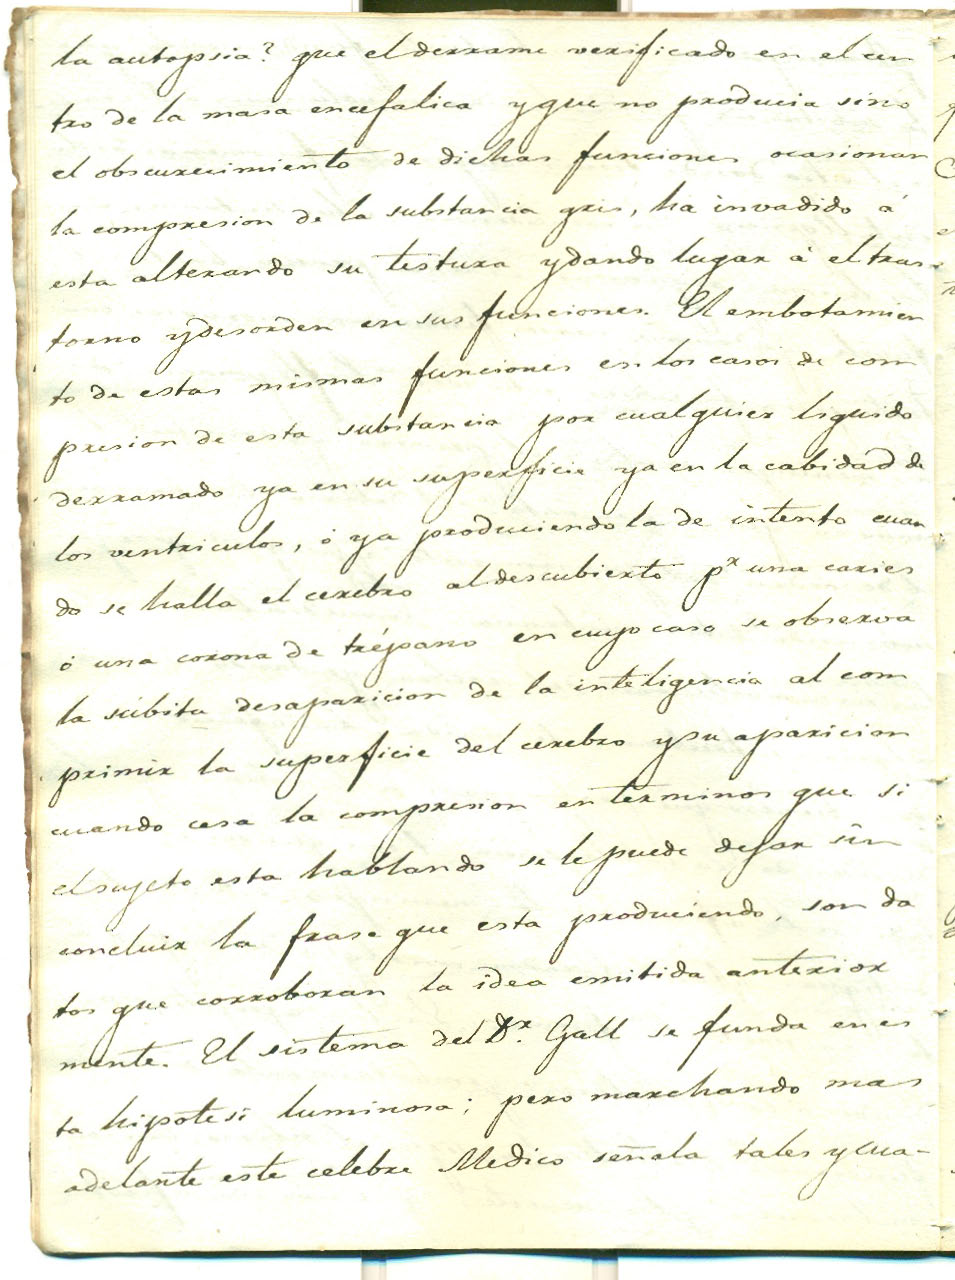 la autopsia? que el derrame verificado en el cen
tro de la masa encefalica y que no producia sino
el obscurecimiento de dichas funciones ocasionan
la compresion de la substancia gris, ha invadido á
esta alterando su testura y dando lugar á el tras-
torno y desorden en sus funciones. El embotamien
to de estas mismas funciones en los casos de com
presion de esta substancia por cualquier liquido
derramado ya en su superficie ya en la cabidad de
los ventriculos, ó ya produciendola de intento cuan
do se halla el cerebro al descubierto pr una caries
ó una corona de trépano en cuyo caso se observa
la súbita desaparicion de la inteligencia al com
primir la superficie del cerebro y su aparicion
cuando cesa la compresion en terminos que si
el sugeto esta hablando se le puede dejar sin
concluir la frase que esta produciendo, son da
tos que corroboran la idea emitida anterior
mente. El sistema del Dr. Gall se funda en es
ta hipótesi luminosa; pero marchando mas
adelante este celebre Medico señala tales y cua-